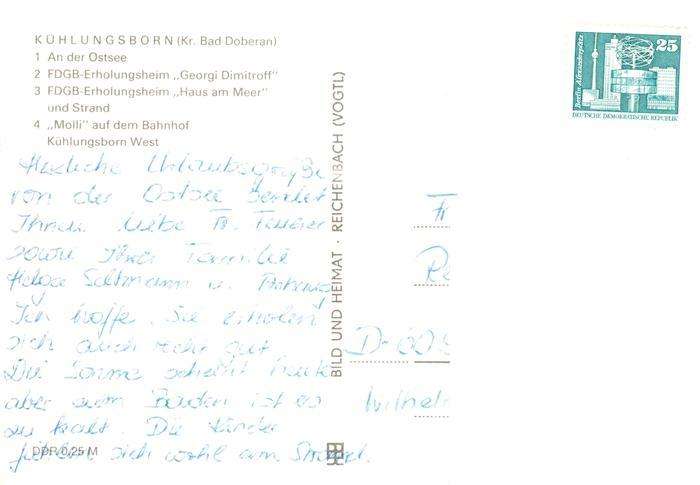 KÜHLUNGSBORN (Kr. Bad Doberan)
1 An der Ostsee
2 FDGB-Erholungsheim „Georgi Dimitroff"
3 FDGB-Erholungsheim „Haus am Meer"
und Strand
4 „Molli" auf dem Bahnhof
Kühlungsborn West
Herzliche Urlaubsgrüße
von der Ostsee sendet
Ihnen liebe Fr.
sowie Ihrer Familie
Helga Saltmann u.
Ich hoffe, Sie erholen
sich auch recht gut
Die Sonne scheint heute
aber zum Baden ist es
zu kalt. Die Kinder
fühlen sich wohl am Strand.
DDR 0,25 M
BILD UND HEIMAT · REICHENBACH (VOGTL)
Berlin, Alexanderplatz
25
DEUTSCHE DEMOKRATISCHE REPUBLIK
Fr
Wilhelm